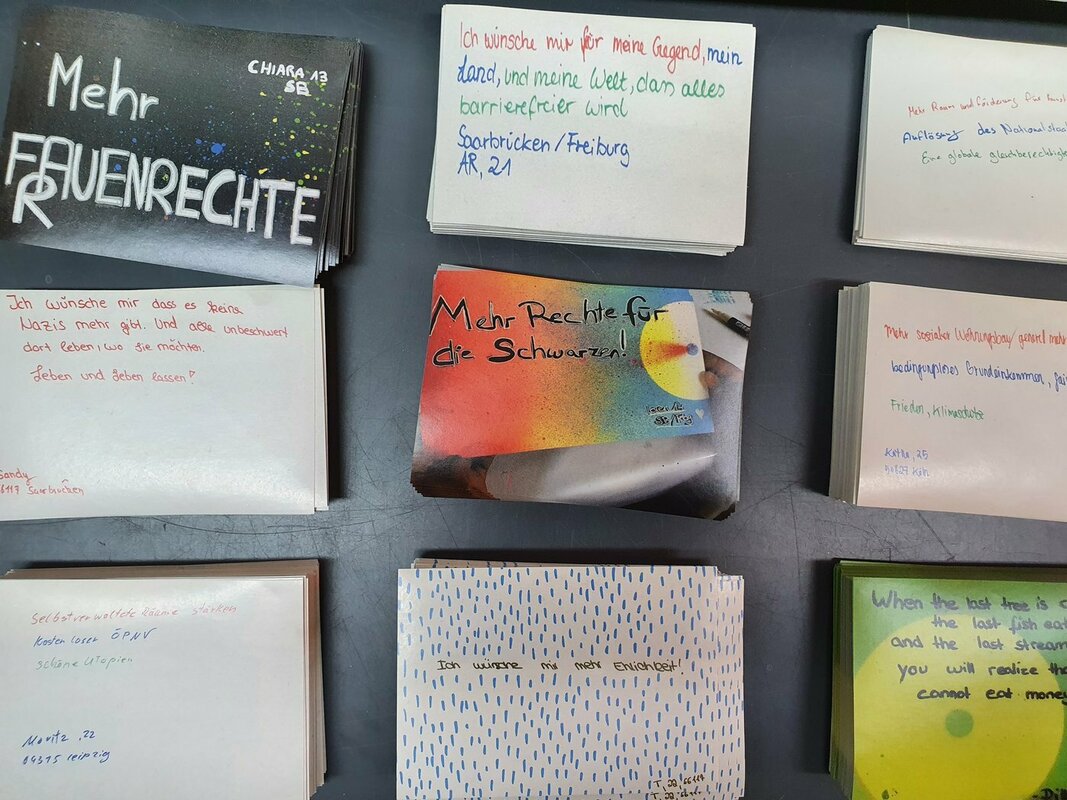 Mehr
FAUENRECHTE
R
CHIARA 13
SB
Ich wünsche mir für meine Gegend, mein
Land, und meine Welt, dass alles
barrierefreier wird
Saarbrücken/Freiburg
AR, 21
Mehr Raum und Förderung für
Auflösung des Nationalstaa
Eine globale gleichberechtigte
Ich wünsche mir dass es keine
Nazis mehr gibt. Und alle unbeschwert
dort leben, wo sie möchten.
Leben und leben lassen!
Sandy
66117 Saarbrücken
Mehr Rechte für
die Schwarzen!
Mehr sozialer Wohnungsbau/ generell mehr
bedingungsloses Grundeinkommen, fai
Frieden, Klimaschutz
25
Köln
Selbstverwaltete Räume stärken
Kostenloser ÖPNV
schöne Utopien
Moritz, 22
04315 Leipzig
Ich wünsche mir mehr Ehrlichkeit!
T, 28, 66117
When the last tree is c
the last fish eat
and the last stream
you will realize tha
cannot eat money